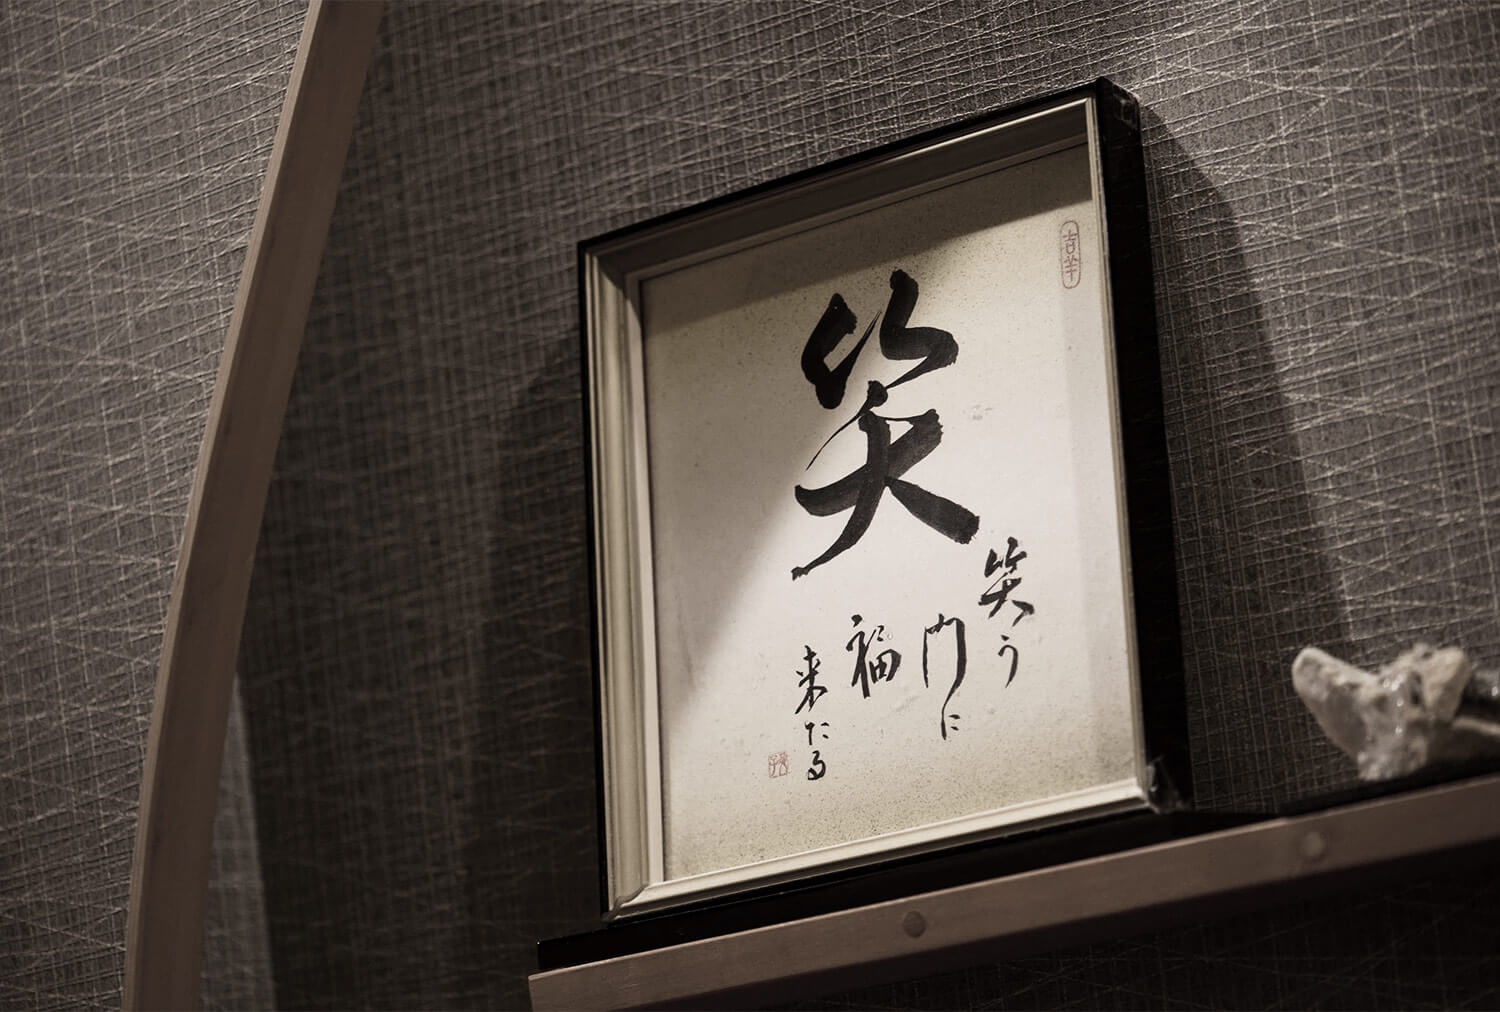 笑
笑う
門に
福
来たる
吉羊